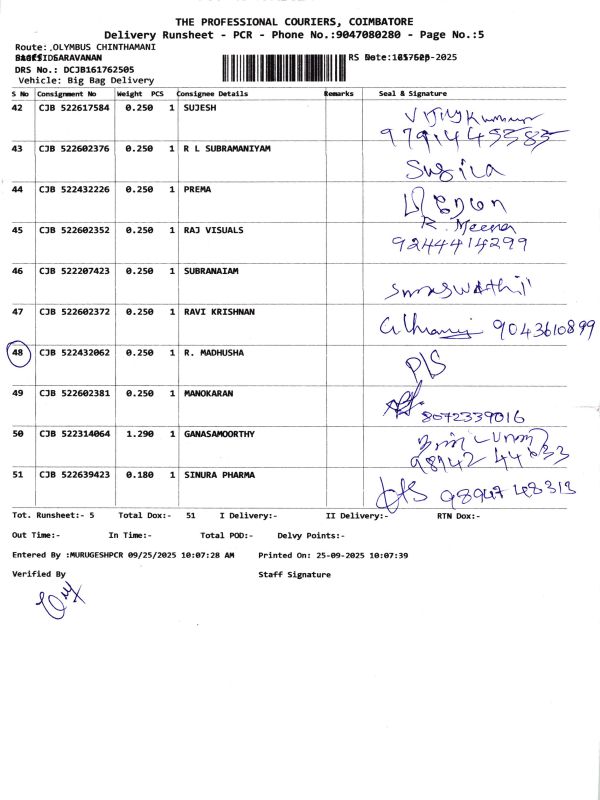 THE PROFESSIONAL COURIERS, COIMBATORE
Delivery Runsheet - PCR - Phone No.:9047080280 - Page No.:5
Route: .OLYMBUS CHINTHAMANI
SARAVANAN
RS Date: -2025
DRS No.: DCJB161762505
Vehicle: Big Bag Delivery
S No Consignment No Weight PCS Consignee Details Remarks Seal & Signature
42 CJB 522617584 0.250 1 SUJESH
43 CJB 522602376 0.250 1 R L SUBRAMANIYAM Sugila
44 CJB 522432226 0.250 1 PREMA
45 CJB 522602352 0.250 1 RAJ VISUALS R. Meena
9244414299
46 CJB 522207423 0.250 1 SUBRANAIAM
47 CJB 522602372 0.250 1 RAVI KRISHNAN 9043610899
48 CJB 522432062 0.250 1 R. MADHUSHA P/S
49 CJB 522602381 0.250 1 MANOKARAN 8072339016
50 CJB 522314064 1.290 1 GANASAMOORTHY
98942 44633
51 CJB 522639423 0.180 1 SINURA PHARMA 98947 48313
Tot. Runsheet:- 5 Total Dox:- 51 I Delivery:- II Delivery:- RTN Dox:-
Out Time:- In Time:- Total POD:- Delvy Points:-
Entered By :MURUGESHPCR 09/25/2025 10:07:28 AM Printed On: 25-09-2025 10:07:39
Verified By Staff Signature